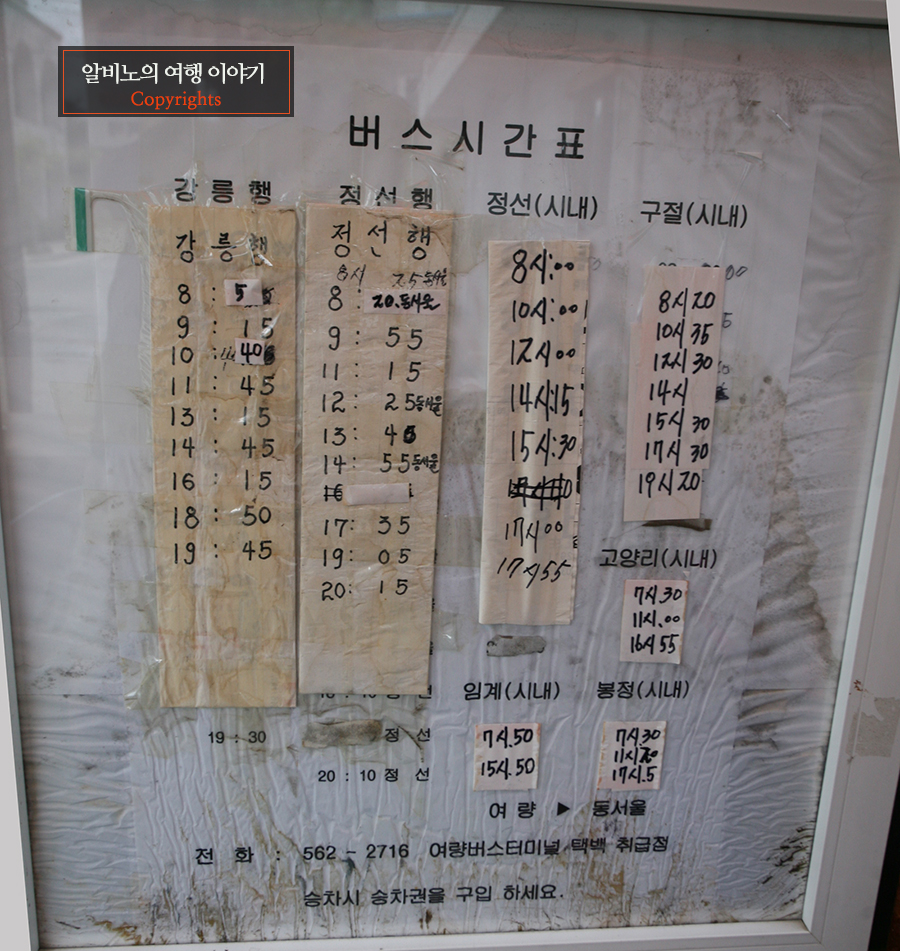 알비노의 여행 이야기
Copyrights
버스시간표
강릉행
정선행
정선(시내)
구절(시내)
강릉행
8 : 5
9 : 15
10 : 40
11 : 45
13 : 15
14 : 45
16 : 15
18 : 50
19 : 45
19 : 30
정선행
8시 25 동서울
8 : 20. 동서울
9 : 55
11 : 15
12 : 25 동서울
13 : 45
14 : 55 동서울
17 : 35
19 : 05
20 : 15
정 선
20 : 10 정 선
8시:00
10시:00
12시:00
14시15
15시:30
17시:00
17시55
8시20
10시35
12시30
14시
15시30
17시30
19시20
고양리(시내)
7시.30
11시.00
16시55
임계(시내)
7시.50
15시.50
봉정(시내)
7시.30
11시
17시.5
여 량 ▶ 동서울
전 화 : 562 - 2716 여량버스터미널 택백 취급점
승차시 승차권을 구입 하세요.